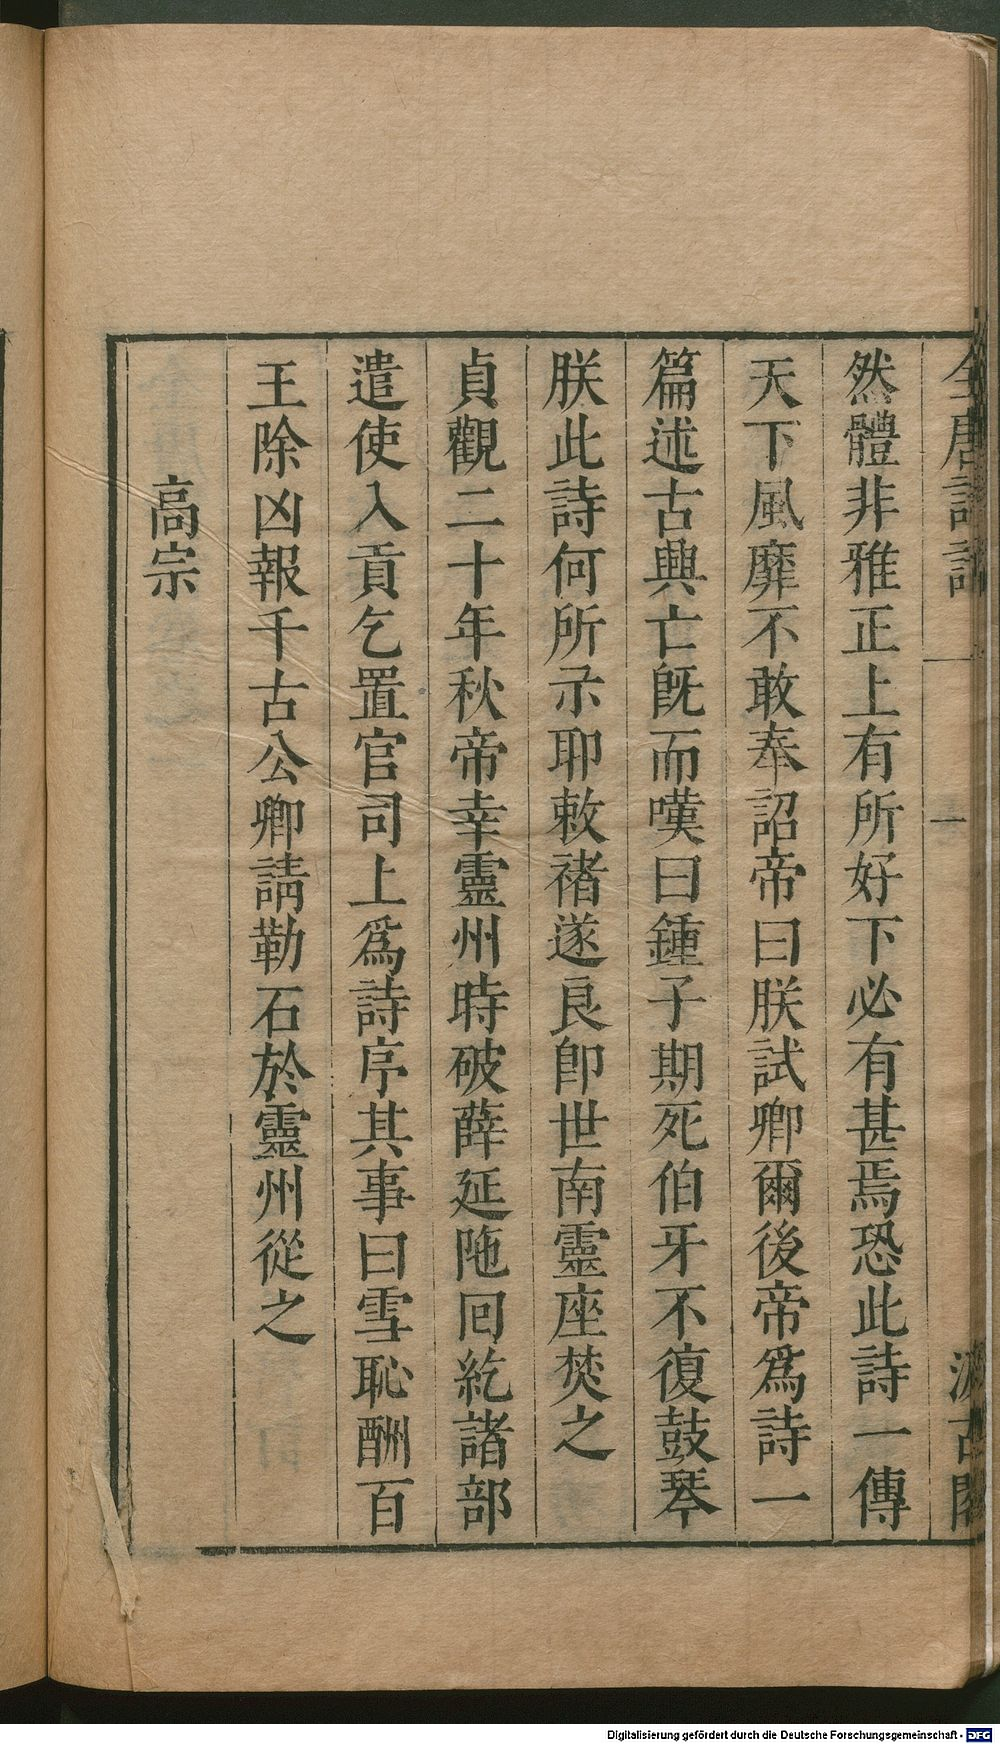 全唐詩話
一
汲古閣
然體非雅正上有所好下必有甚焉恐此詩一傳
天下風靡不敢奉詔帝曰朕試卿爾後帝爲詩一
篇述古興亡旣而嘆曰鍾子期死伯牙不復鼓琴
朕此詩何所示耶敕褚遂良卽世南靈座焚之
貞觀二十年秋帝幸靈州時破薛延陁回紇諸部
遣使入貢乞置官司上爲詩序其事曰雪恥酬百
王除凶報千古公卿請勒石於靈州從之
高宗
Digitalisierung gefördert durch die Deutsche Forschungsgemeinschaft - DFG